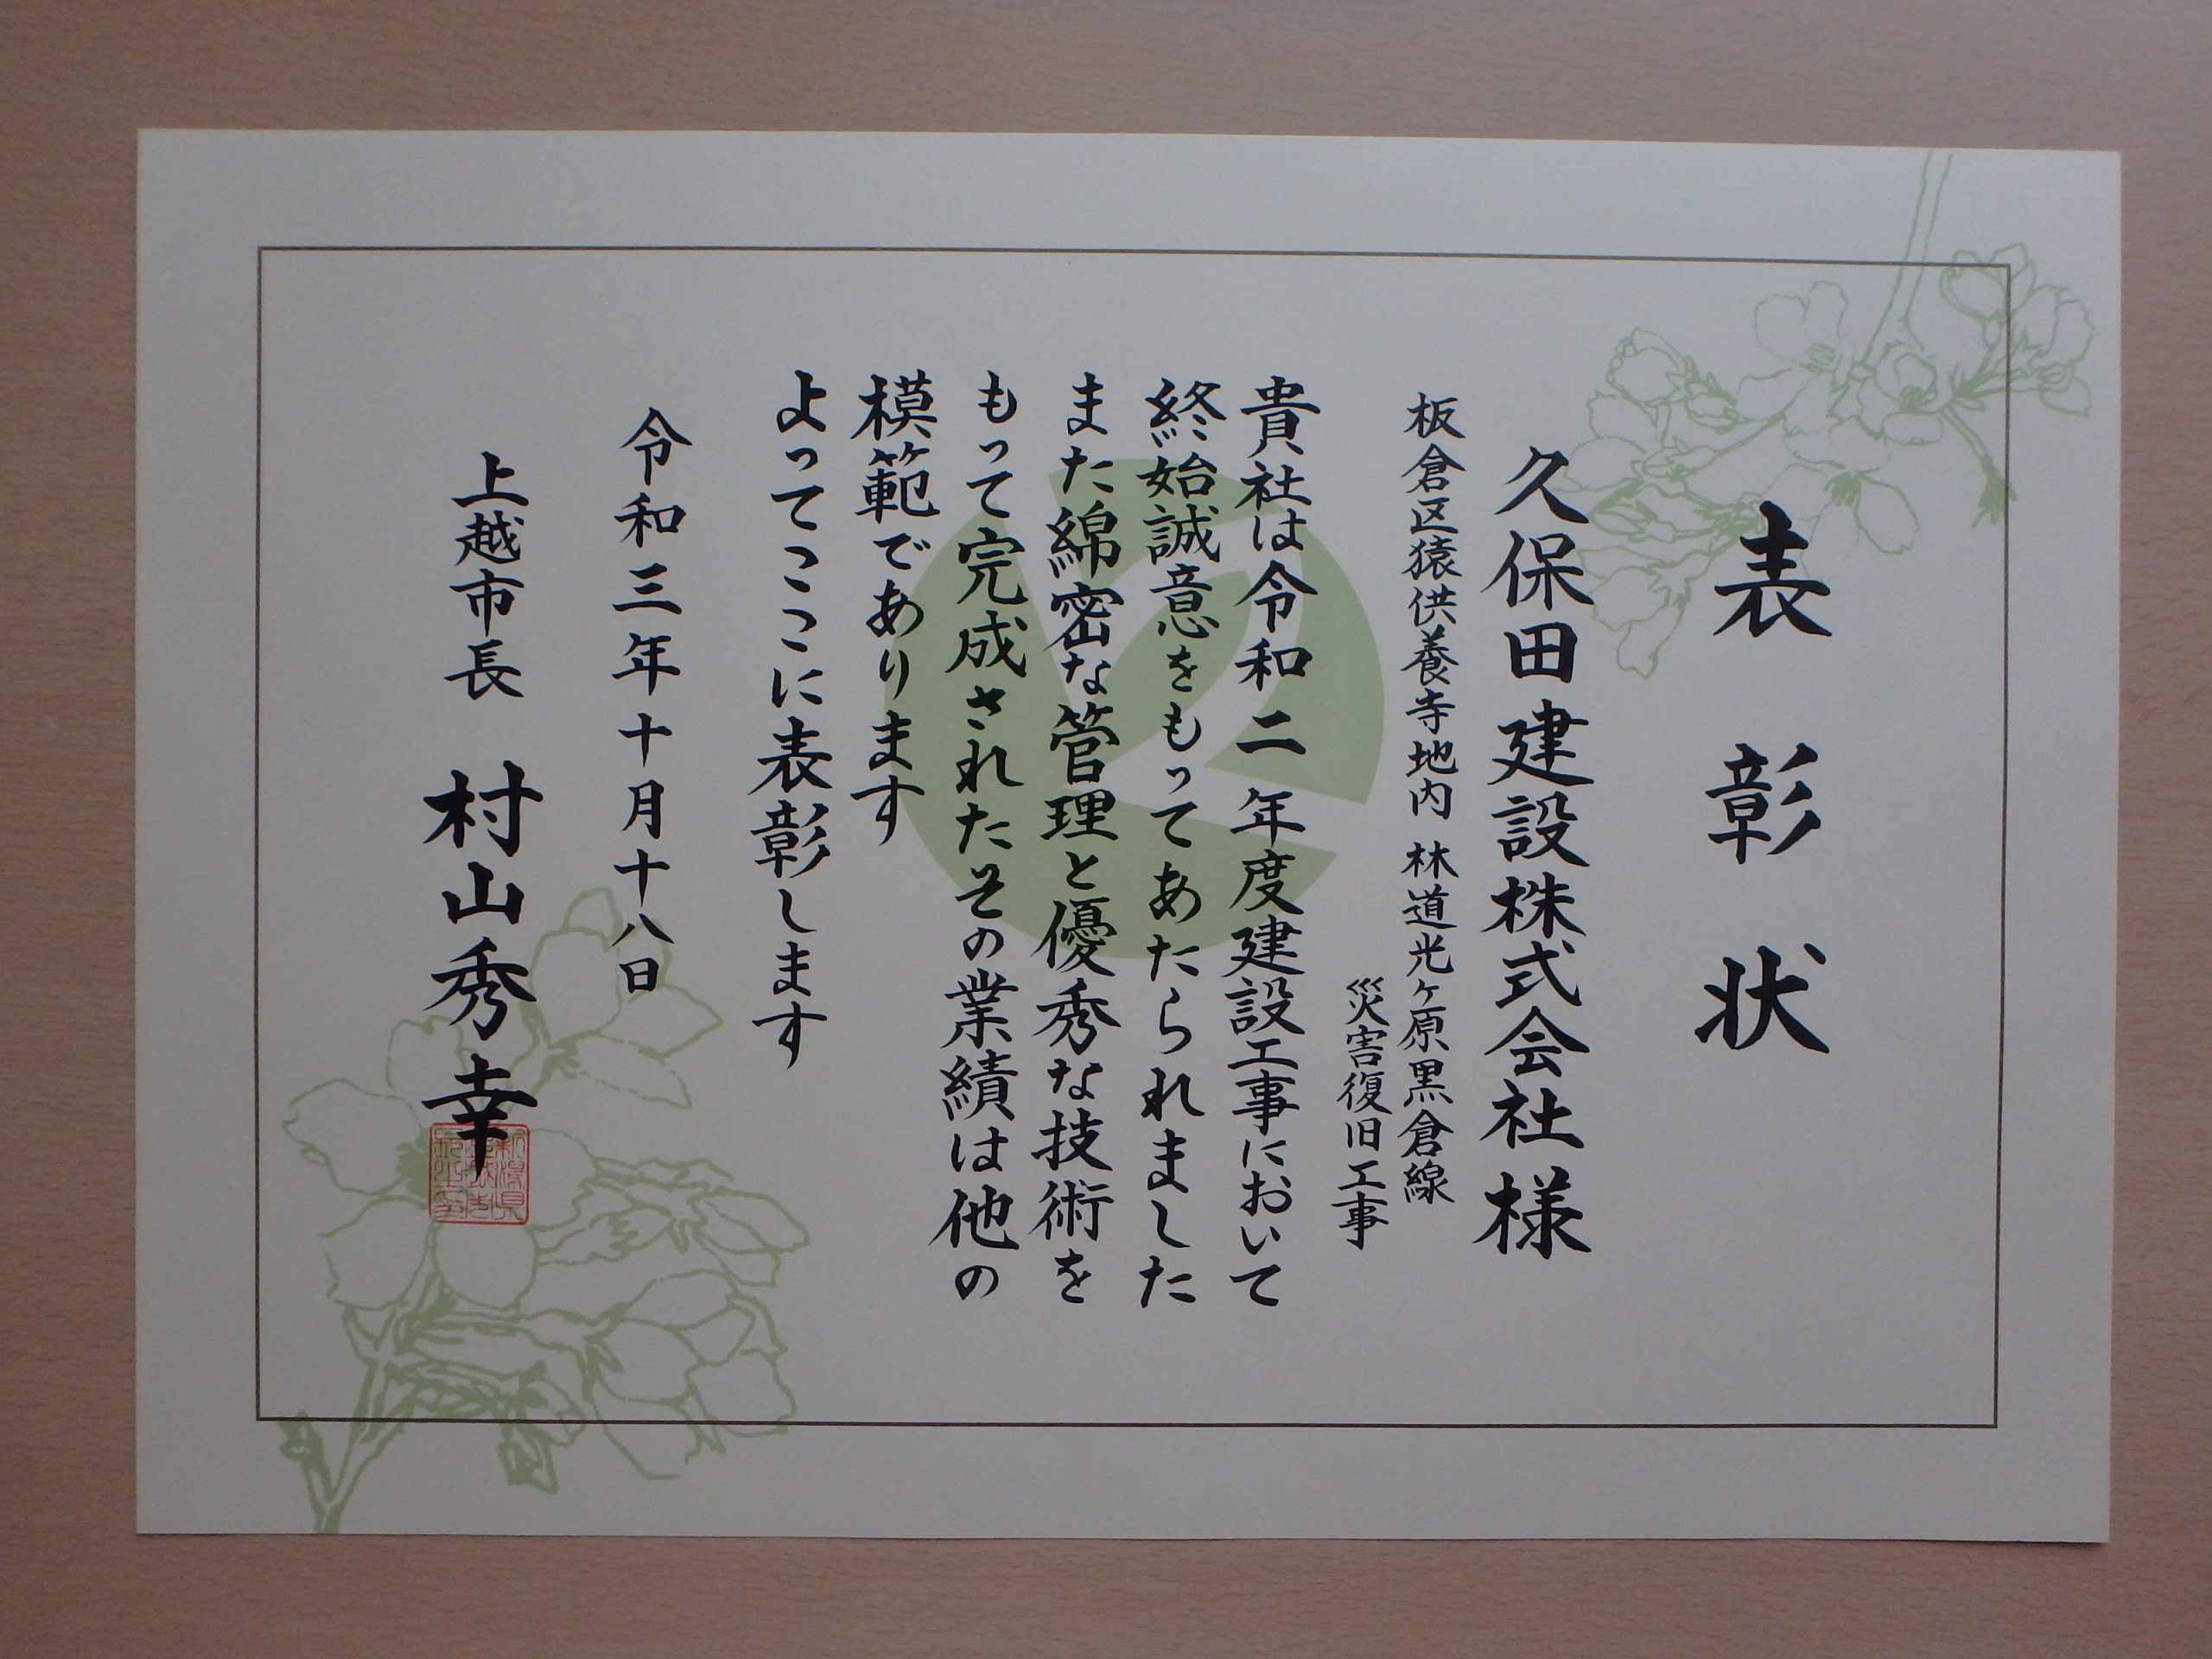 表彰状
久保田建設株式会社様
板倉区猿供養寺地内 林道光ヶ原黒倉線
災害復旧工事
貴社は令和二年度建設工事において
終始誠意をもってあたられました
また綿密な管理と優秀な技術を
もって完成されたその業績は他の
模範であります
よってここに表彰します
令和三年十月十八日
上越市長 村山秀幸